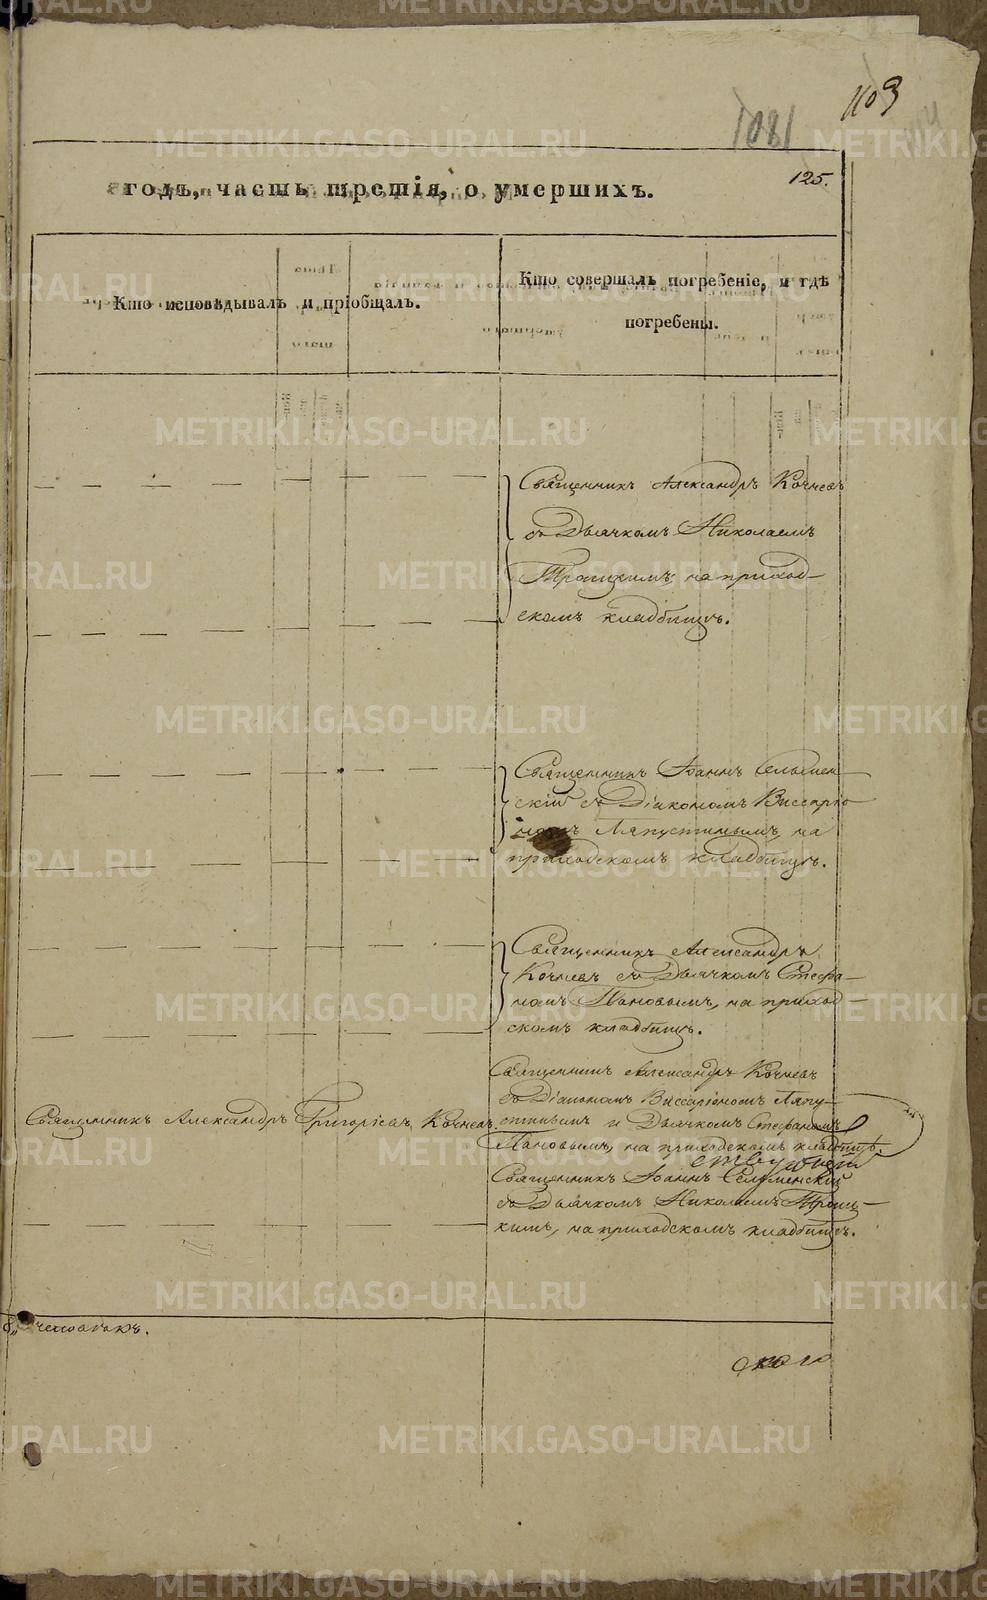 1081
1103
125.
годъ, часть третія, о умершихъ.
Кто исповѣдывалъ и пріобщалъ.
Кто совершалъ погребеніе, и гдѣ
погребены.
Священникъ Александръ Кочневъ
съ Дьячкомъ Николаемъ
Троицкимъ, на приход-
скомъ кладбищѣ.
Священникъ Іоаннъ Селмен-
скій съ Діакономъ Виссаріо
номъ Ляпустинымъ, на
приходскомъ кладбищѣ.
Священникъ Александръ
Кочневъ съ Дьячкомъ Стефа-
номъ Пановымъ, на приход-
скомъ кладбищѣ.
Священникъ Александръ Григоріевъ Кочневъ
Священникъ Александръ Кочневъ
съ Діакономъ Виссаріономъ Ляпу-
стинымъ и Дьячкомъ Стефаномъ
Пановымъ, на приходскомъ кладбищѣ.
Священникъ Іоаннъ Селменскій
съ Дьячкомъ Николаемъ Троиц-
кимъ, на приходскомъ кладбищѣ.
человѣкъ.
METRIKI.GASO-URAL.RU